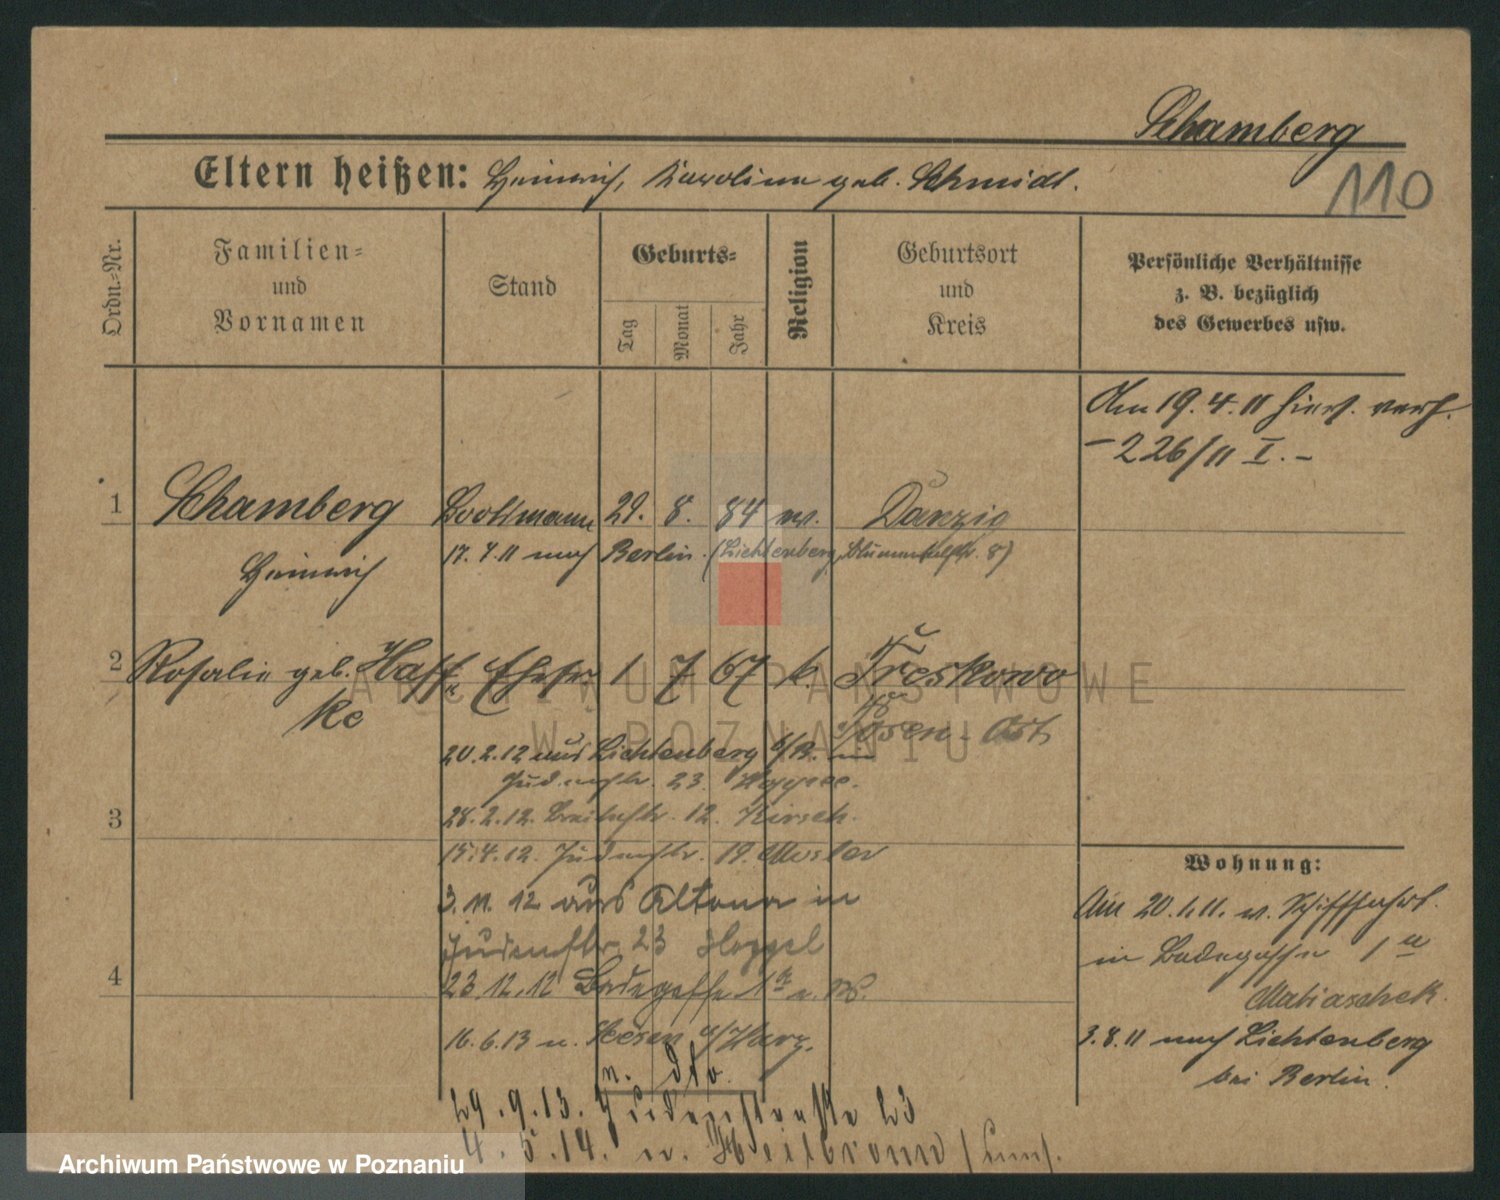 Schamberg
110
Eltern heißen: Heinrich, Karoline geb. Schmidt.
Ordn.-Nr.
Familien- und Vornamen
Stand
Geburts-
Tag
Monat
Jahr
Religion
Geburtsort und Kreis
Persönliche Verhältnisse z. B. bezüglich des Gewerbes usw.
Am 19. 4. 11 hiers. verh.
- 226/11 I. -
1 Schamberg Bootsmann 29. 8. 84 ev. Danzig
Heinrich
17. 7. 11 nach Berlin. (Lichtenberg, 8)
2 Rosalie geb. Haff Ehefr 1 7 67 k. Treskowo
ke
Posen-Ost
20. 2. 12 aus Lichtenberg b/B. in
Judenstr. 23.
3 28. 2. 12. Breitestr. 12. Hirsch.
15. 4. 12. Judenstr. 19.
3. 11. 12 aus Altona in
Judenstr. 23 Hoppel
4 23. 12. 12 Badegasse 1
16. 6. 13 n. a/Harz.
n. dto.
29. 9. 13. Judenstraße 23
4. 5. 14. n. Heilbronn
Wohnung:
Am 20. 1. 11. v. Schifffahrt.
in Badegasse 1
Matiaschek.
3. 8. 11 nach Lichtenberg
bei Berlin.
ARCHIWUM PAŃSTWOWE
W POZNANIU
Archiwum Państwowe w Poznaniu